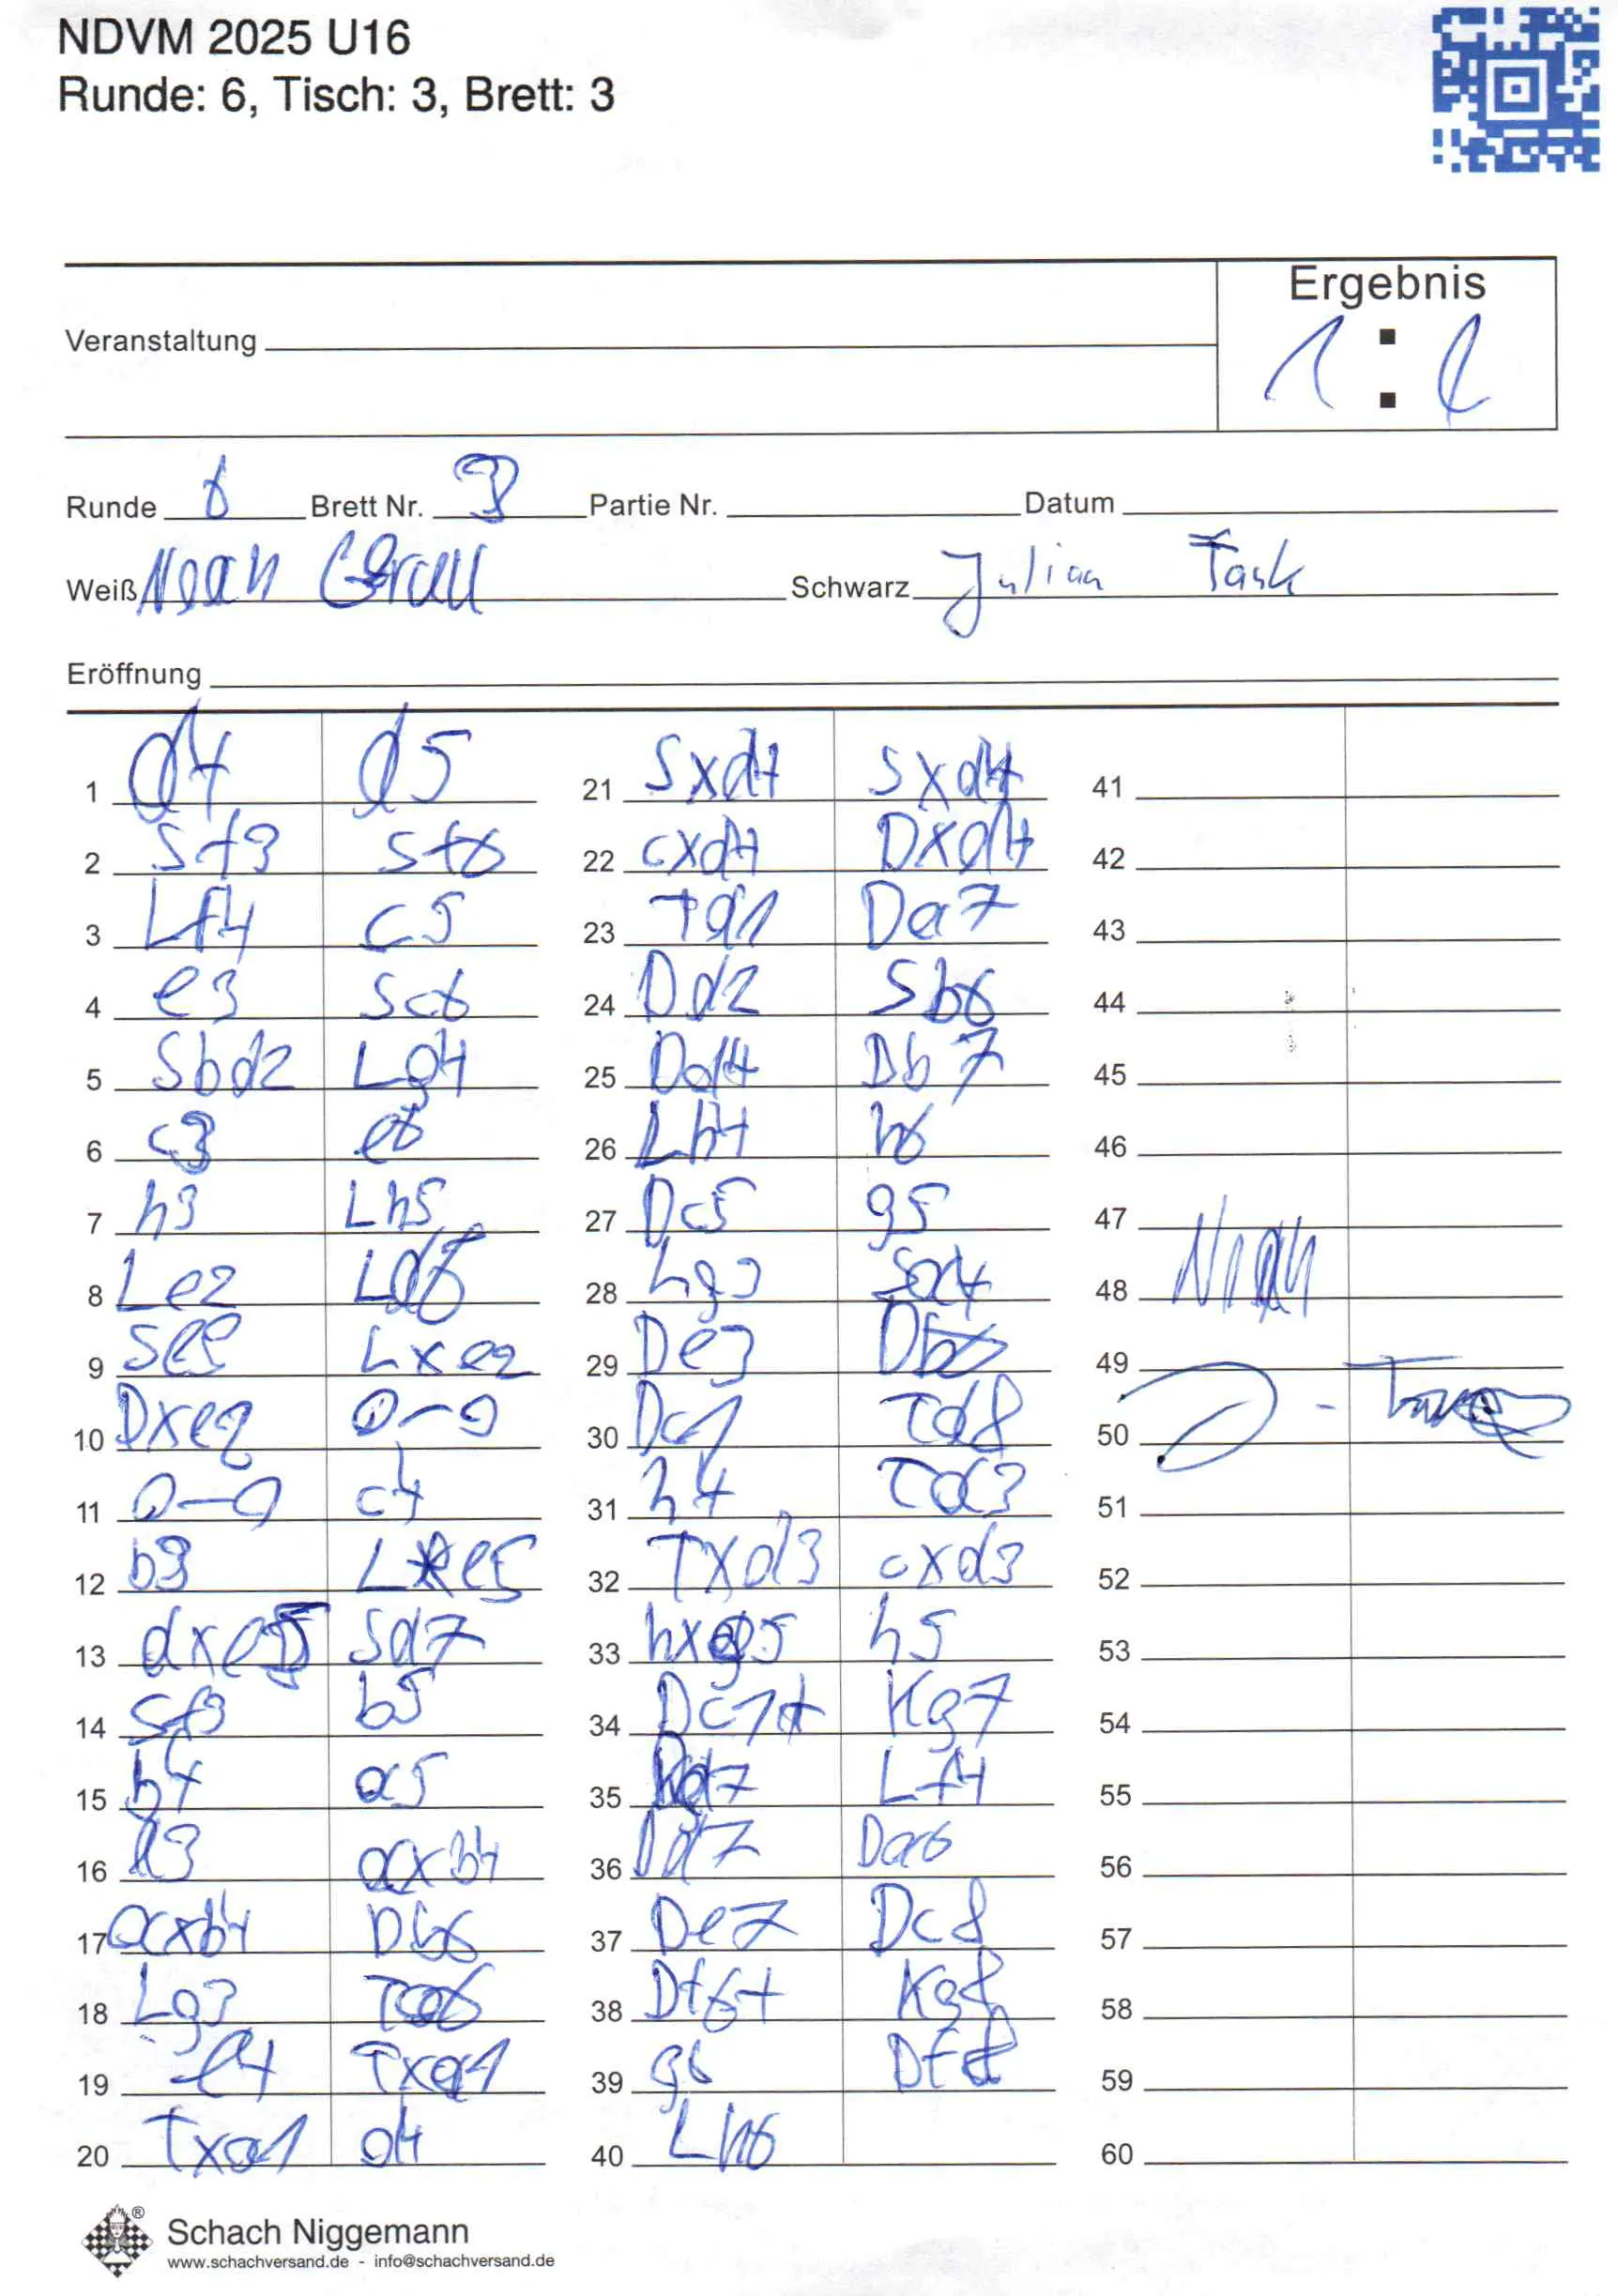 NDVM 2025 U16
Runde: 6, Tisch: 3, Brett: 3
Ergebnis
Veranstaltung
1 :
Runde 6 Brett Nr. 3 Partie Nr. Datum
Weiß Noah Schwarz Julian Task
Eröffnung
1 d4 d5 21 Sxd4 Sxd4 41
2 Sf3 Sf6 22 cxd4 Dxd4 42
3 Lf4 c5 23 Td1 Da7 43
4 e3 Sc6 24 Dd2 Sb6 44
5 Sbd2 Lg4 25 Dd4 Db7 45
6 c3 e6 26 Lh4 h6 46
7 h3 Lh5 27 Dc5 g5 47
8 Le2 Ld6 28 Lg3 Sa4 48 Noah
9 Se5 Lxe2 29 De3 Db6 49
10 Dxe2 0-0 30 Dc1 Td8 50
11 0-0 c4 31 h4 Td3 51
12 b3 Lxe5 32 Txd3 cxd3 52
13 dxe5 Sd7 33 hxg5 h5 53
14 Sf3 b5 34 Dc7+ Kg7 54
15 b4 a5 35 Lf4 55
16 a3 axb4 36 Dd7 Da6 56
17 axb4 Db6 37 De7 Dc8 57
18 Lg3 Ta6 38 Df6+ Kg8 58
19 e4 Txa1 39 g6 Df8 59
20 Txa1 d4 40 Lh6 60
®
Schach Niggemann
www.schachversand.de - info@schachversand.de